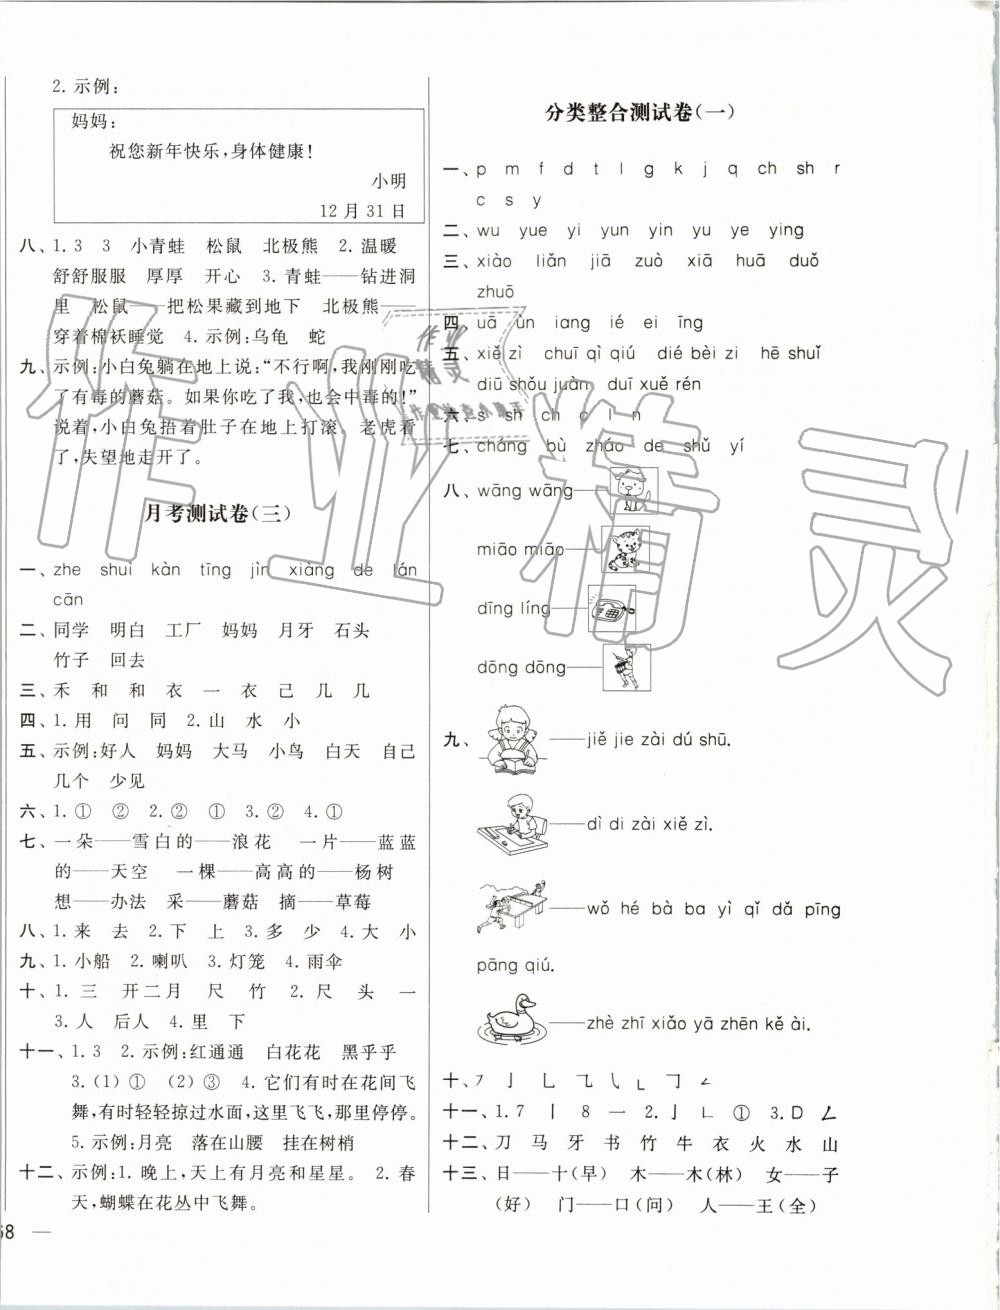 2. 示例:
妈妈:
祝您新年快乐,身体健康!
小明
12月31日
八、1. 3 3 小青蛙 松鼠 北极熊 2. 温暖
舒舒服服 厚厚 开心 3. 青蛙——钻进洞
里 松鼠——把松果藏到地下 北极熊——
穿着棉袄睡觉 4. 示例:乌龟 蛇
九、示例:小白兔躺在地上说:“不行啊,我刚刚吃
了有毒的蘑菇。如果你吃了我,也会中毒的!”
说着,小白兔捂着肚子在地上打滚。老虎看
了,失望地走开了。
月考测试卷(三)
一、zhe shuǐ kàn tīng jìn xiàng de lán
cān
二、同学 明白 工厂 妈妈 月牙 石头
竹子 回去
三、禾 和 和 衣 一 衣 己 几 几
四、1. 用 问 同 2. 山 水 小
五、示例:好人 妈妈 大马 小鸟 白天 自己
几个 少见
六、1. ① ② 2. ② ① 3. ② 4. ①
七、一朵——雪白的——浪花 一片——蓝蓝
的——天空 一棵——高高的——杨树
想——办法 采——蘑菇 摘——草莓
八、1. 来 去 2. 下 上 3. 多 少 4. 大 小
九、1. 小船 2. 喇叭 3. 灯笼 4. 雨伞
十、1. 三 开二月 尺 竹 2. 尺 头 一
3. 人 后人 4. 里 下
十一、1. 3 2. 示例:红通通 白花花 黑乎乎
3. (1) ① (2) ③ 4. 它们有时在花间飞
舞,有时轻轻掠过水面,这里飞飞,那里停停。
5. 示例:月亮 落在山腰 挂在树梢
十二、示例:1. 晚上,天上有月亮和星星。 2. 春
天,蝴蝶在花丛中飞舞。
68 —
分类整合测试卷(一)
一、p m f d t l g k j q ch sh r
c s y
二、wu yue yi yun yin yu ye ying
三、xiào liǎn jiā zuò xiā huā duǒ
zhuō
四、uā ùn iang ié ei īng
五、xiě zì chuī qì qiú dié bèi zi hē shuǐ
diū shǒu juàn duī xuě rén
六、s sh ch c l n
七、cháng bù zháo de shǔ yí
八、wāng wāng——
miāo miāo——
dīng líng——
dōng dōng——
九、——jiě jie zài dú shū.
——dì di zài xiě zì.
——wǒ hé bà ba yì qǐ dǎ pīng
pāng qiú.
——zhè zhī xiǎo yā zhēn kě ài.
十、㇇ 亅 ㇗ ⺄ ㇏ ㇄ ㇕ ㇜
十一、1. 7 丨 8 一 2. 亅 ㇗ ① 3. D ㇜
十二、刀 马 牙 书 竹 牛 衣 火 水 山
十三、日——十(早) 木——木(林) 女——子
(好) 门——口(问) 人——王(全)
作业精灵